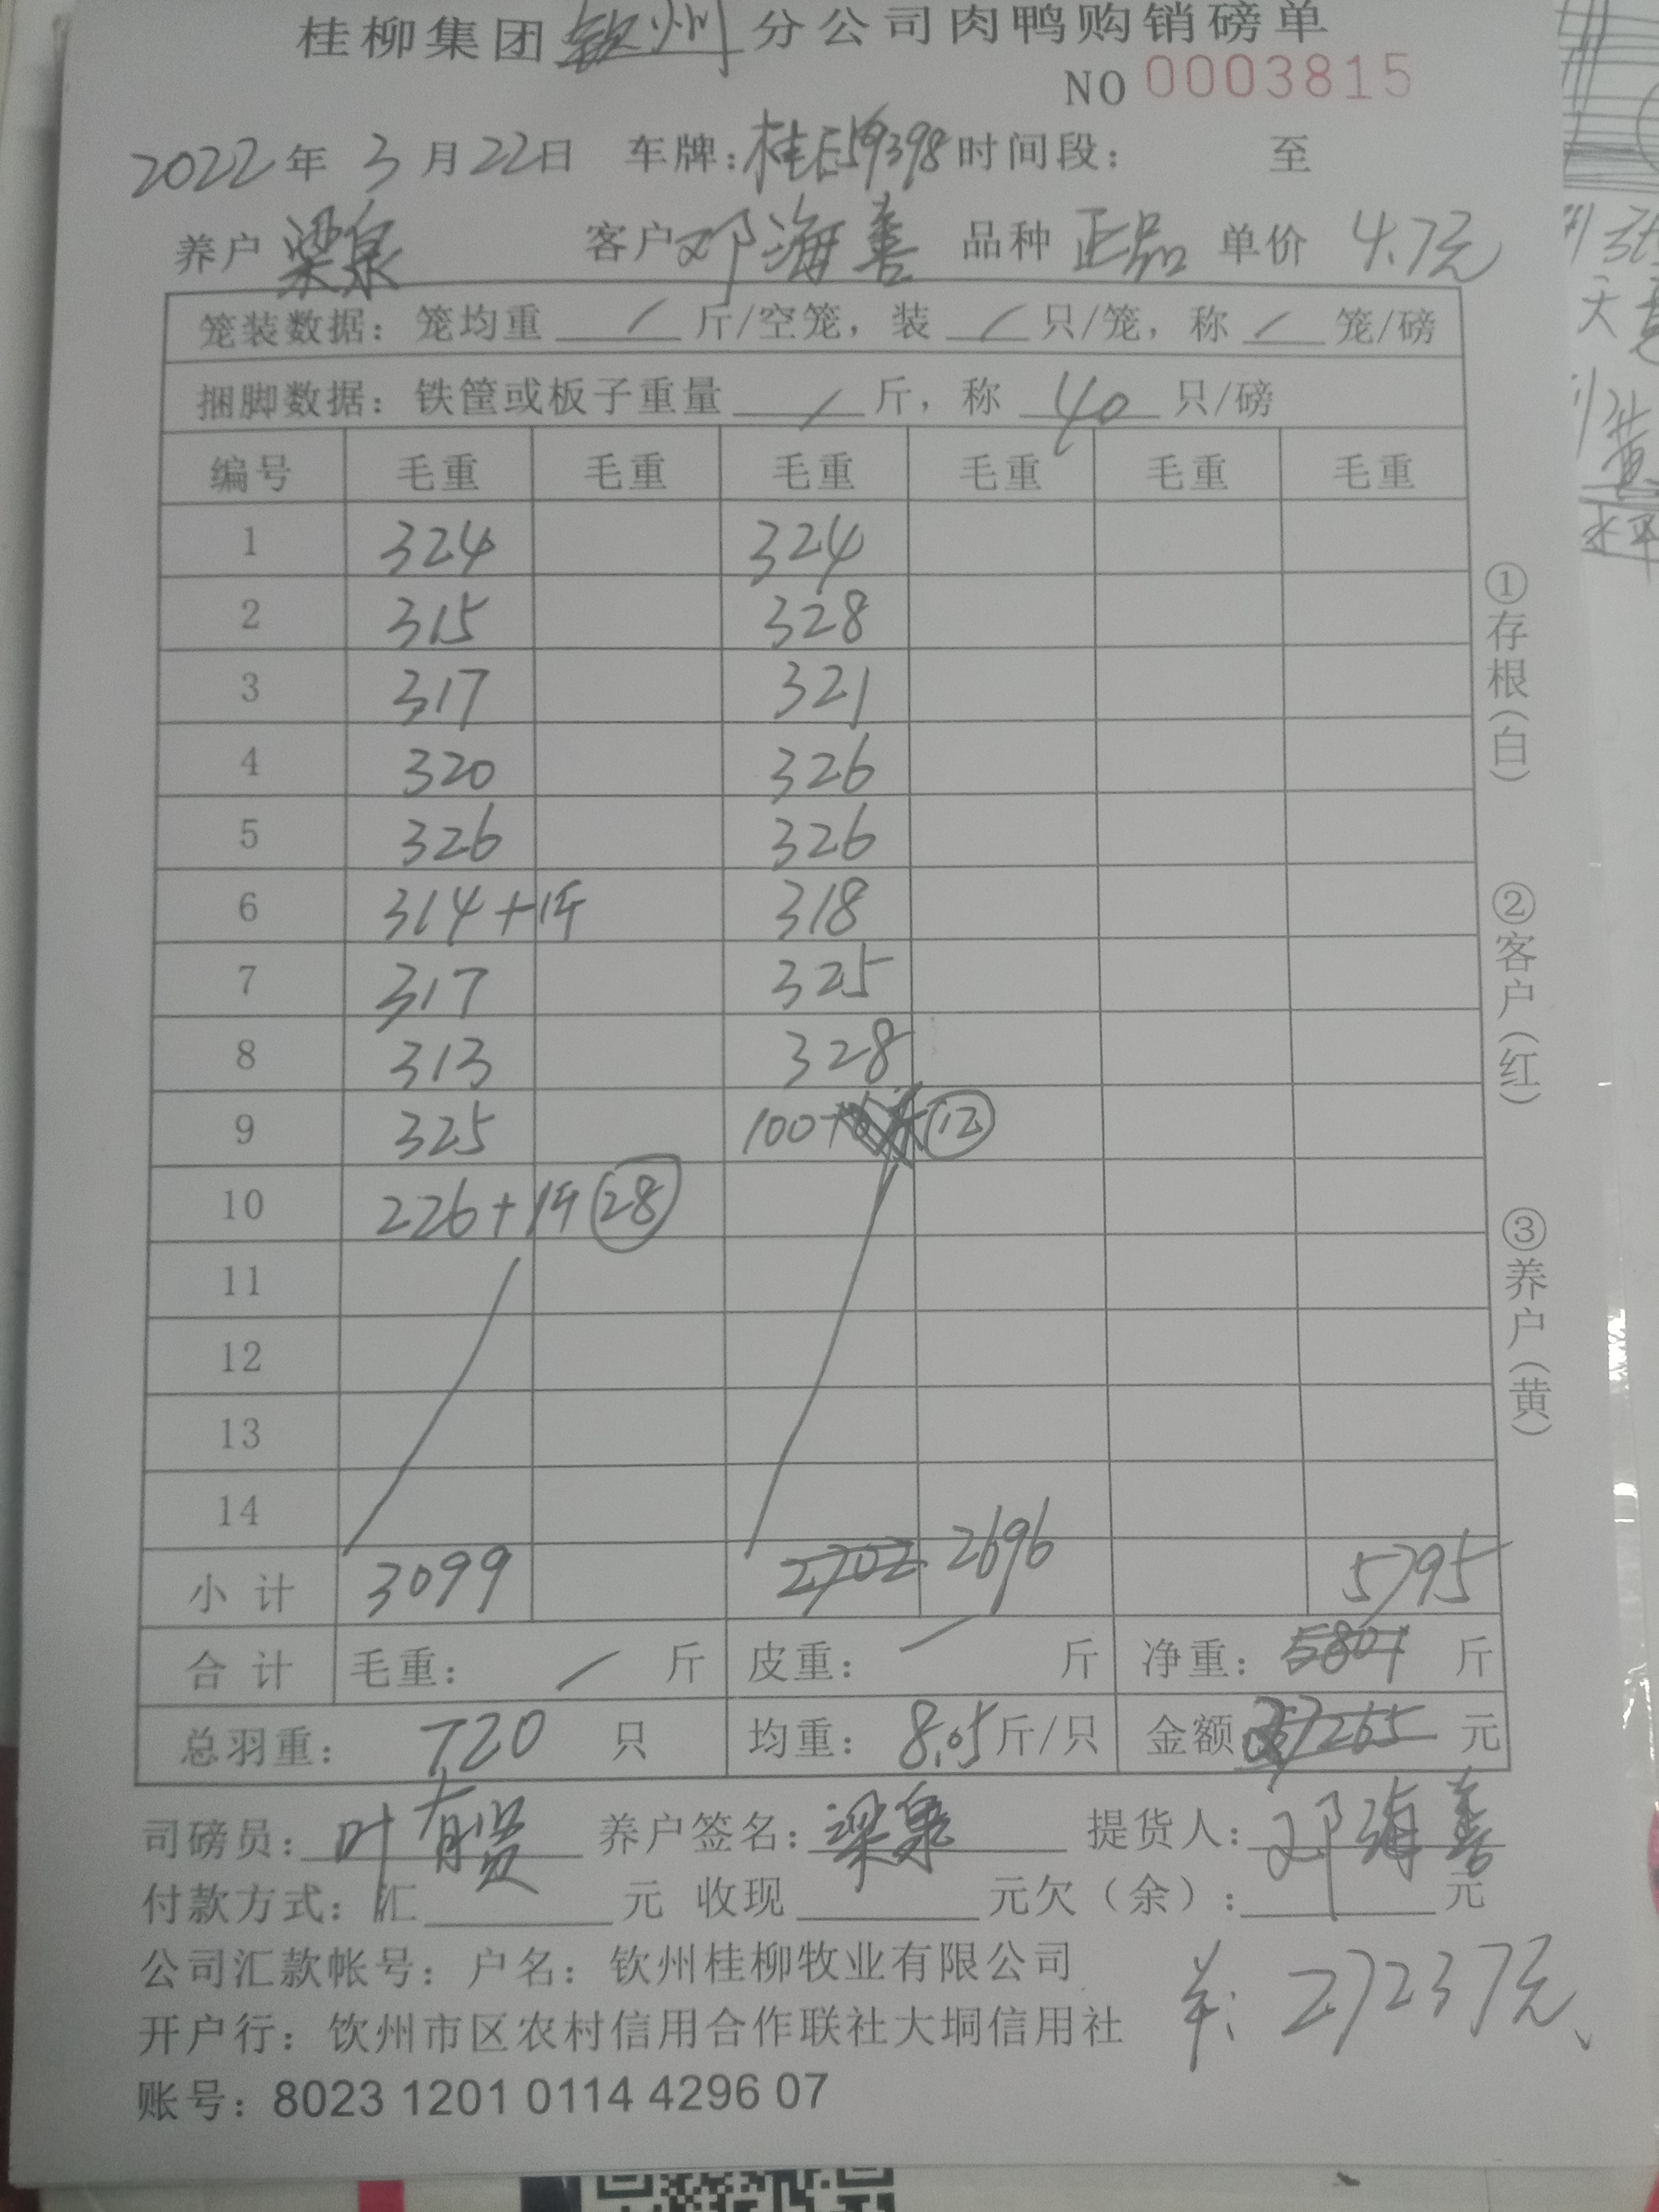 桂柳集团钦州分公司肉鸭购销磅单
NO 0003815
2022年3月22日 车牌:桂E59398时间段: 至
养户 梁泉 客户邓海善 品种 正品 单价 4.7元
笼装数据: 笼均重 / 斤/空笼, 装 / 只/笼, 称 / 笼/磅
捆脚数据: 铁筐或板子重量 / 斤, 称 40 只/磅
编号 毛重 毛重 毛重 毛重 毛重 毛重
1 324 324
2 315 328
3 317 321
4 320 326
5 326 326
6 314+1斤 318
7 317 325
8 313 328
9 325 100+ ⑫
10 226+1斤 ㉘
11
12
13
14
小计 3099 2702 2696 5795
合计 毛重: / 斤 皮重: / 斤 净重: 5801 斤
总羽重: 720 只 均重: 8.05斤/只 金额 27265 元
司磅员: 叶有贤 养户签名: 梁泉 提货人: 邓海善
付款方式: 汇 元 收现 元欠(余): 元
公司汇款帐号: 户名: 钦州桂柳牧业有限公司
开户行: 钦州市区农村信用合作联社大垌信用社
¥: 27237元
账号: 8023 1201 0114 4296 07
①存根(白)
②客户(红)
③养户(黄)